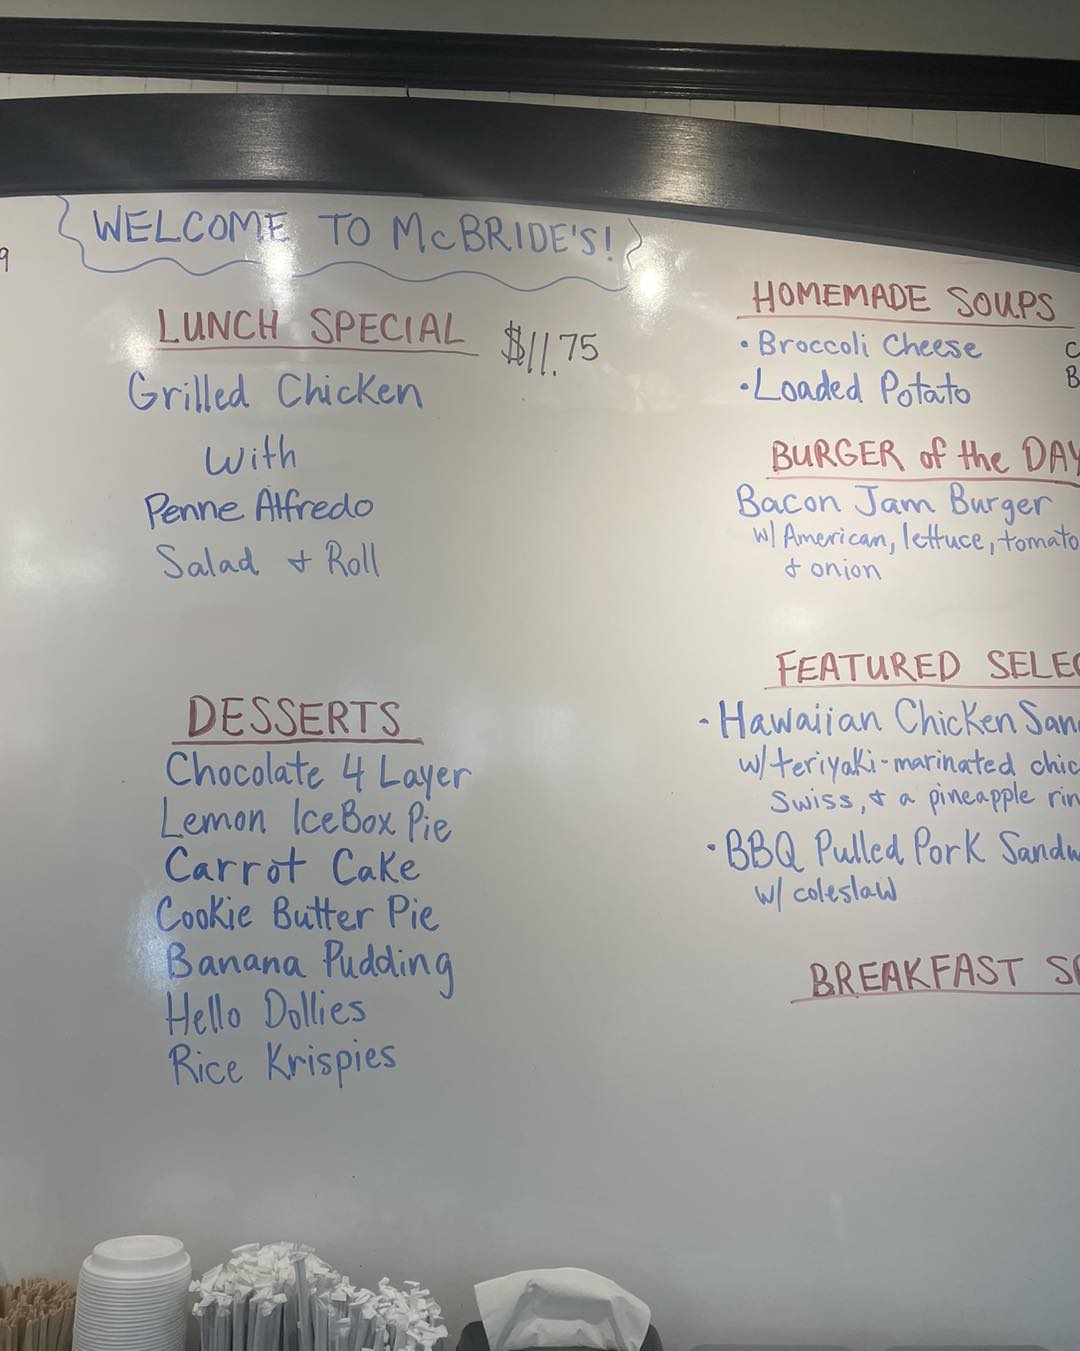 WELCOME TO McBRIDE'S!
9
LUNCH SPECIAL $11.75
Grilled Chicken
with
Penne Alfredo
Salad & Roll
DESSERTS
Chocolate 4 Layer
Lemon IceBox Pie
Carrot Cake
Cookie Butter Pie
Banana Pudding
Hello Dollies
Rice Krispies
HOMEMADE SOUPS
• Broccoli Cheese
• Loaded Potato
BURGER of the DAY
Bacon Jam Burger
w/ American, lettuce, tomato
& onion
FEATURED
• Hawaiian Chicken
w/ teriyaki-marinated
Swiss, & a pineapple
• BBQ Pulled Pork
w/ coleslaw
BREAKFAST